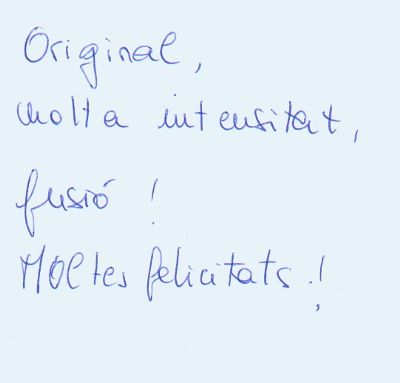 Original,
molta intensitat,
fusió !
Moltes felicitats !